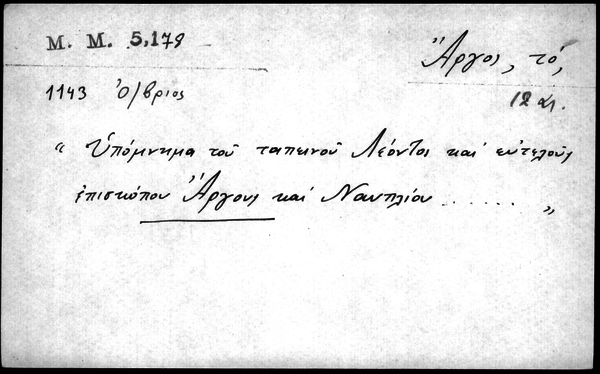 M. M. 5,178
Ἄργος, τό,
1143 Ὀ/βριος
12 αἰ.
" Ὑπόμνημα τοῦ ταπεινοῦ Λέοντος καί εὐτελοῦς
ἐπισκόπου Ἄργους καί Ναυπλίου . . . . . . "